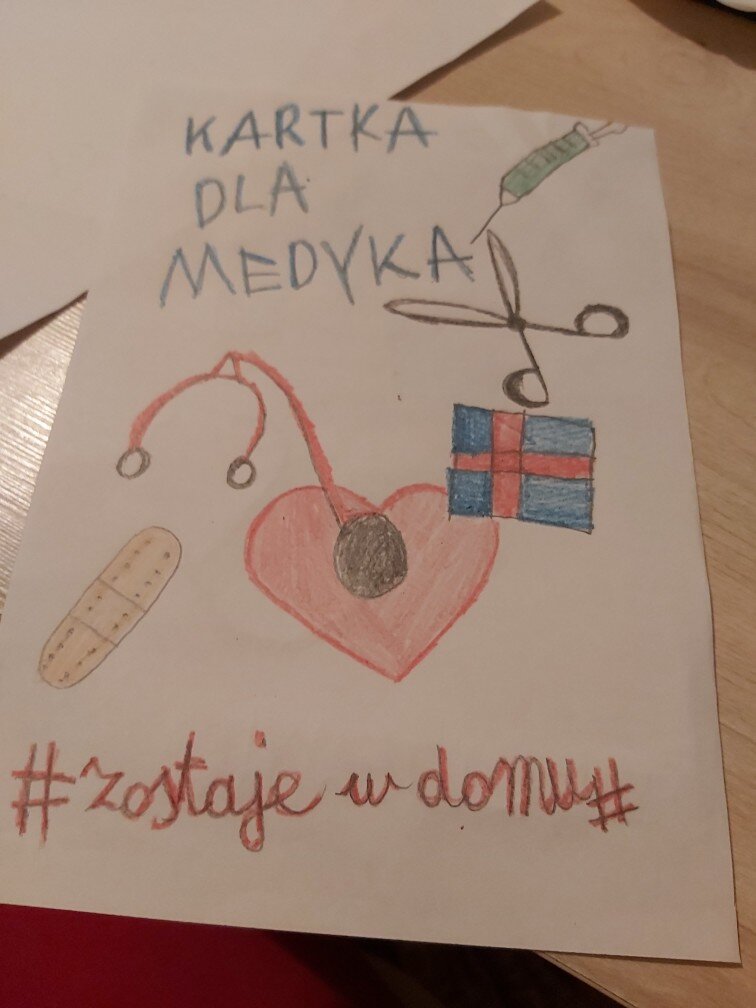 KARTKA
DLA
MEDYKA
#zostaje w domu#